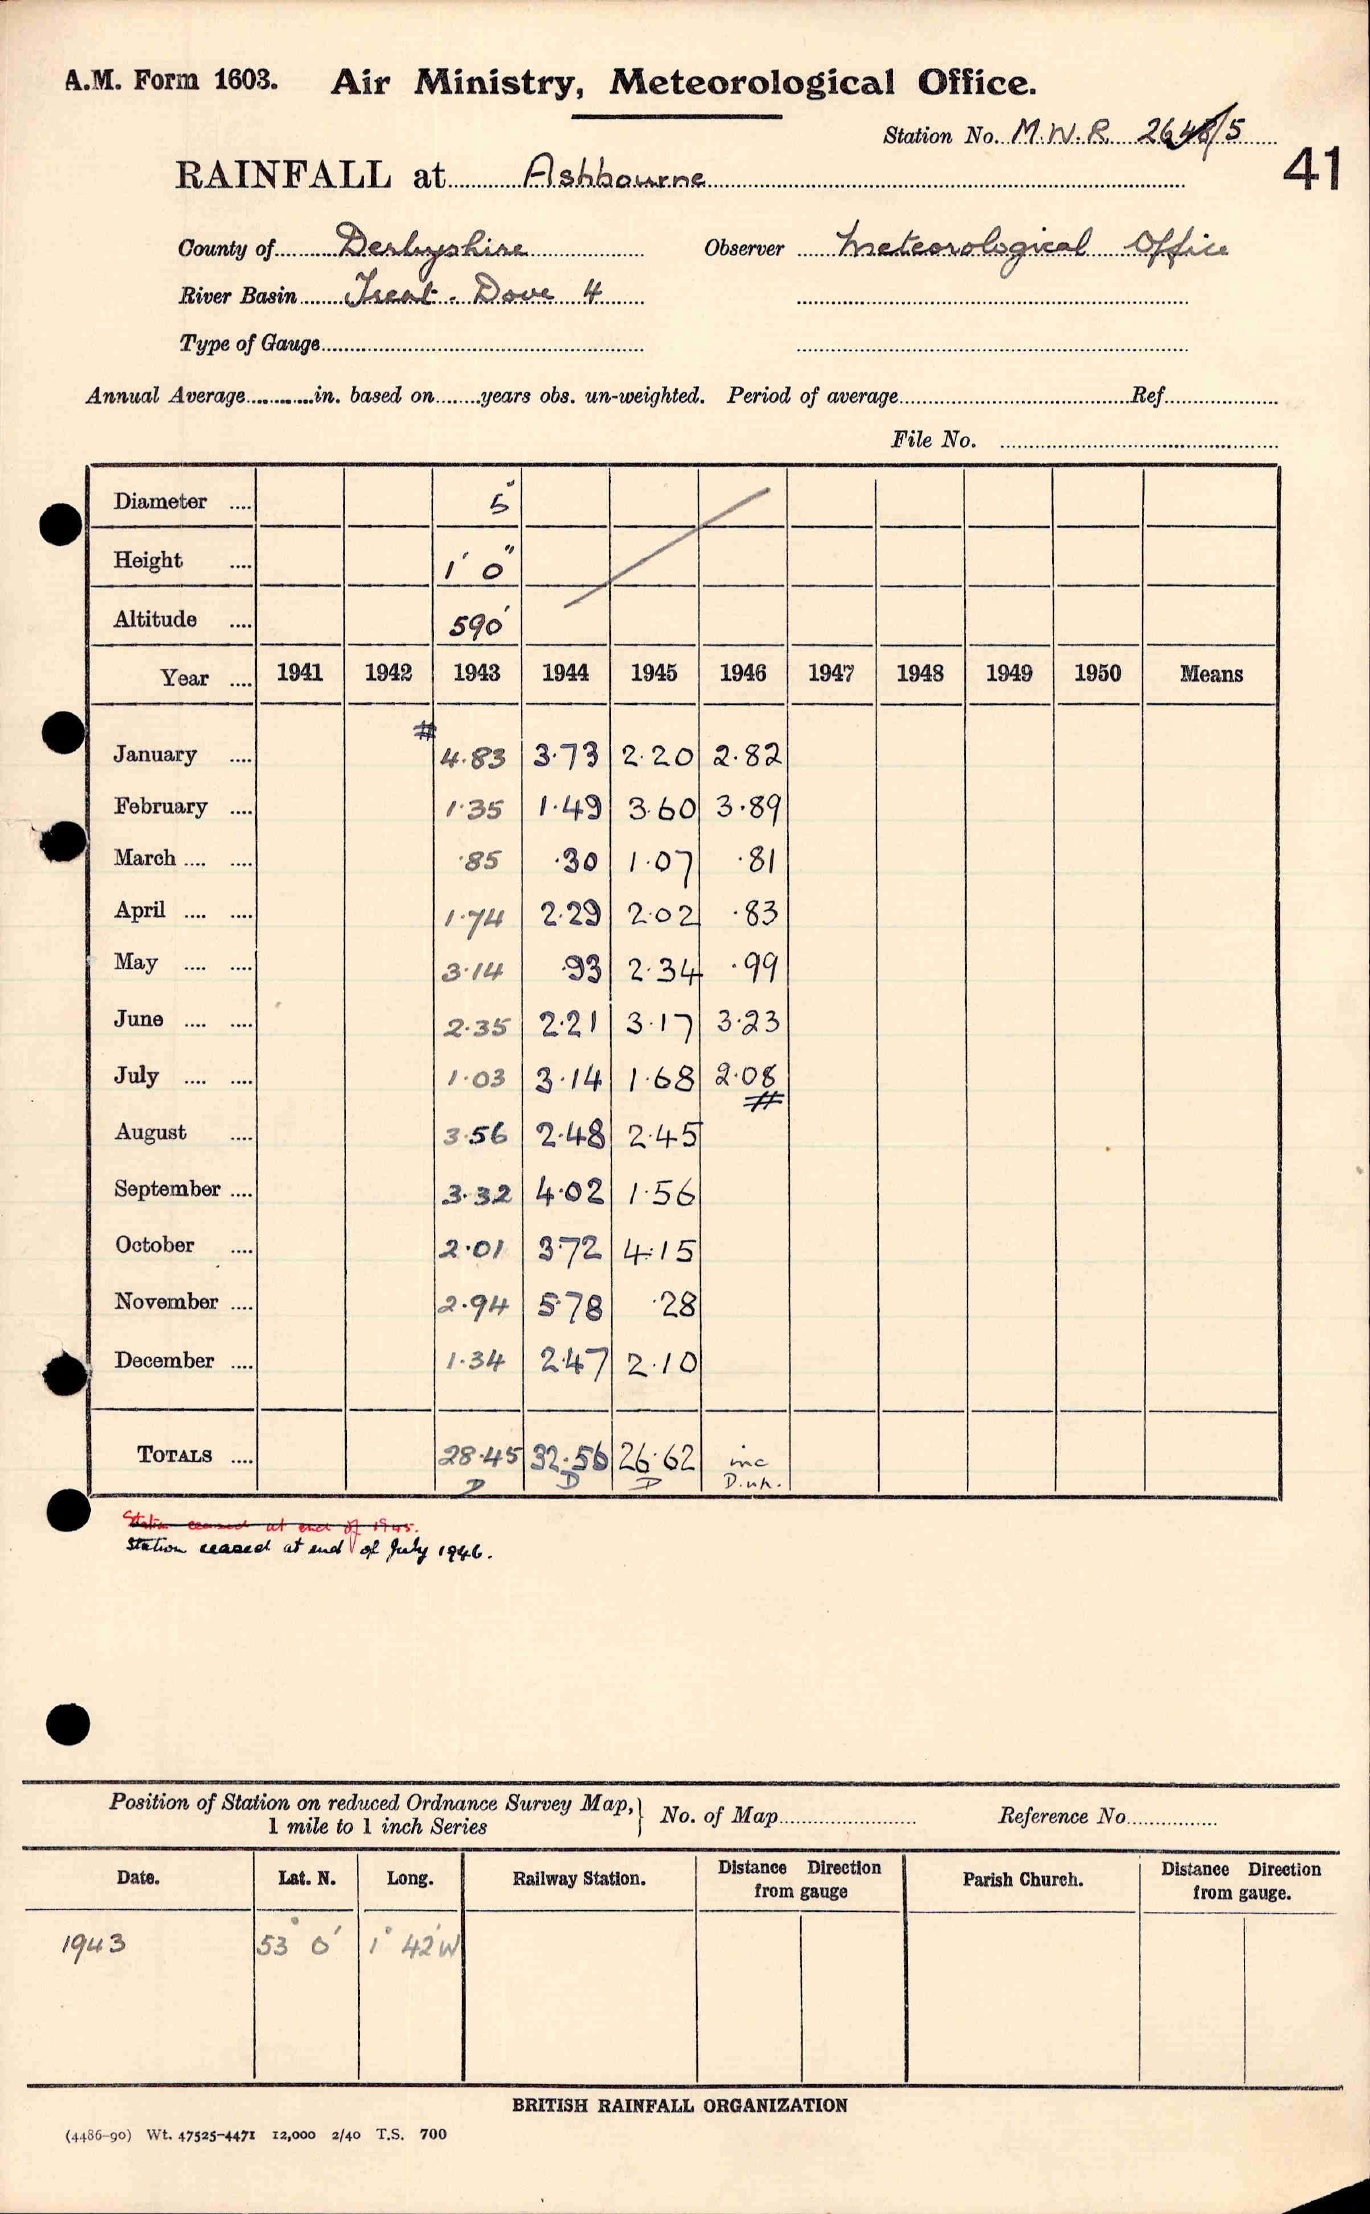 A.M. Form 1603. Air Ministry, Meteorological Office.
Station No. M.W.R. 2648/5
41
RAINFALL at Ashbourne
County of Derbyshire Observer Meteorological Office
River Basin Trent. Dove 4
Type of Gauge
Annual Average in. based on years obs. un-weighted. Period of average Ref.
File No.
Diameter .... 5"
Height .... 1' 0"
Altitude .... 590'
Year .... 1941 1942 1943 1944 1945 1946 1947 1948 1949 1950 Means
#
January .... 4.83 3.73 2.20 2.82
February .... 1.35 1.49 3.60 3.89
March .... .... .85 .30 1.07 .81
April .... .... 1.74 2.29 2.02 .83
May .... .... 3.14 .93 2.34 .99
June .... .... 2.35 2.21 3.17 3.23
July .... .... 1.03 3.14 1.68 2.08
#
August .... 3.56 2.48 2.45
September .... 3.32 4.02 1.56
October .... 2.01 3.72 4.15
November .... 2.94 5.78 .28
December .... 1.34 2.47 2.10
TOTALS .... 28.45 32.56 26.62 inc
D D D D.up.
Station ceased at end of 1945.
Station ceased at end of July 1946.
Position of Station on reduced Ordnance Survey Map, } No. of Map Reference No.
1 mile to 1 inch Series
Date. Lat. N. Long. Railway Station. Distance Direction Parish Church. Distance Direction
from gauge from gauge.
1943 53° 0' 1° 42'W
BRITISH RAINFALL ORGANIZATION
(4486-90) Wt. 47525-4471 12,000 2/40 T.S. 700